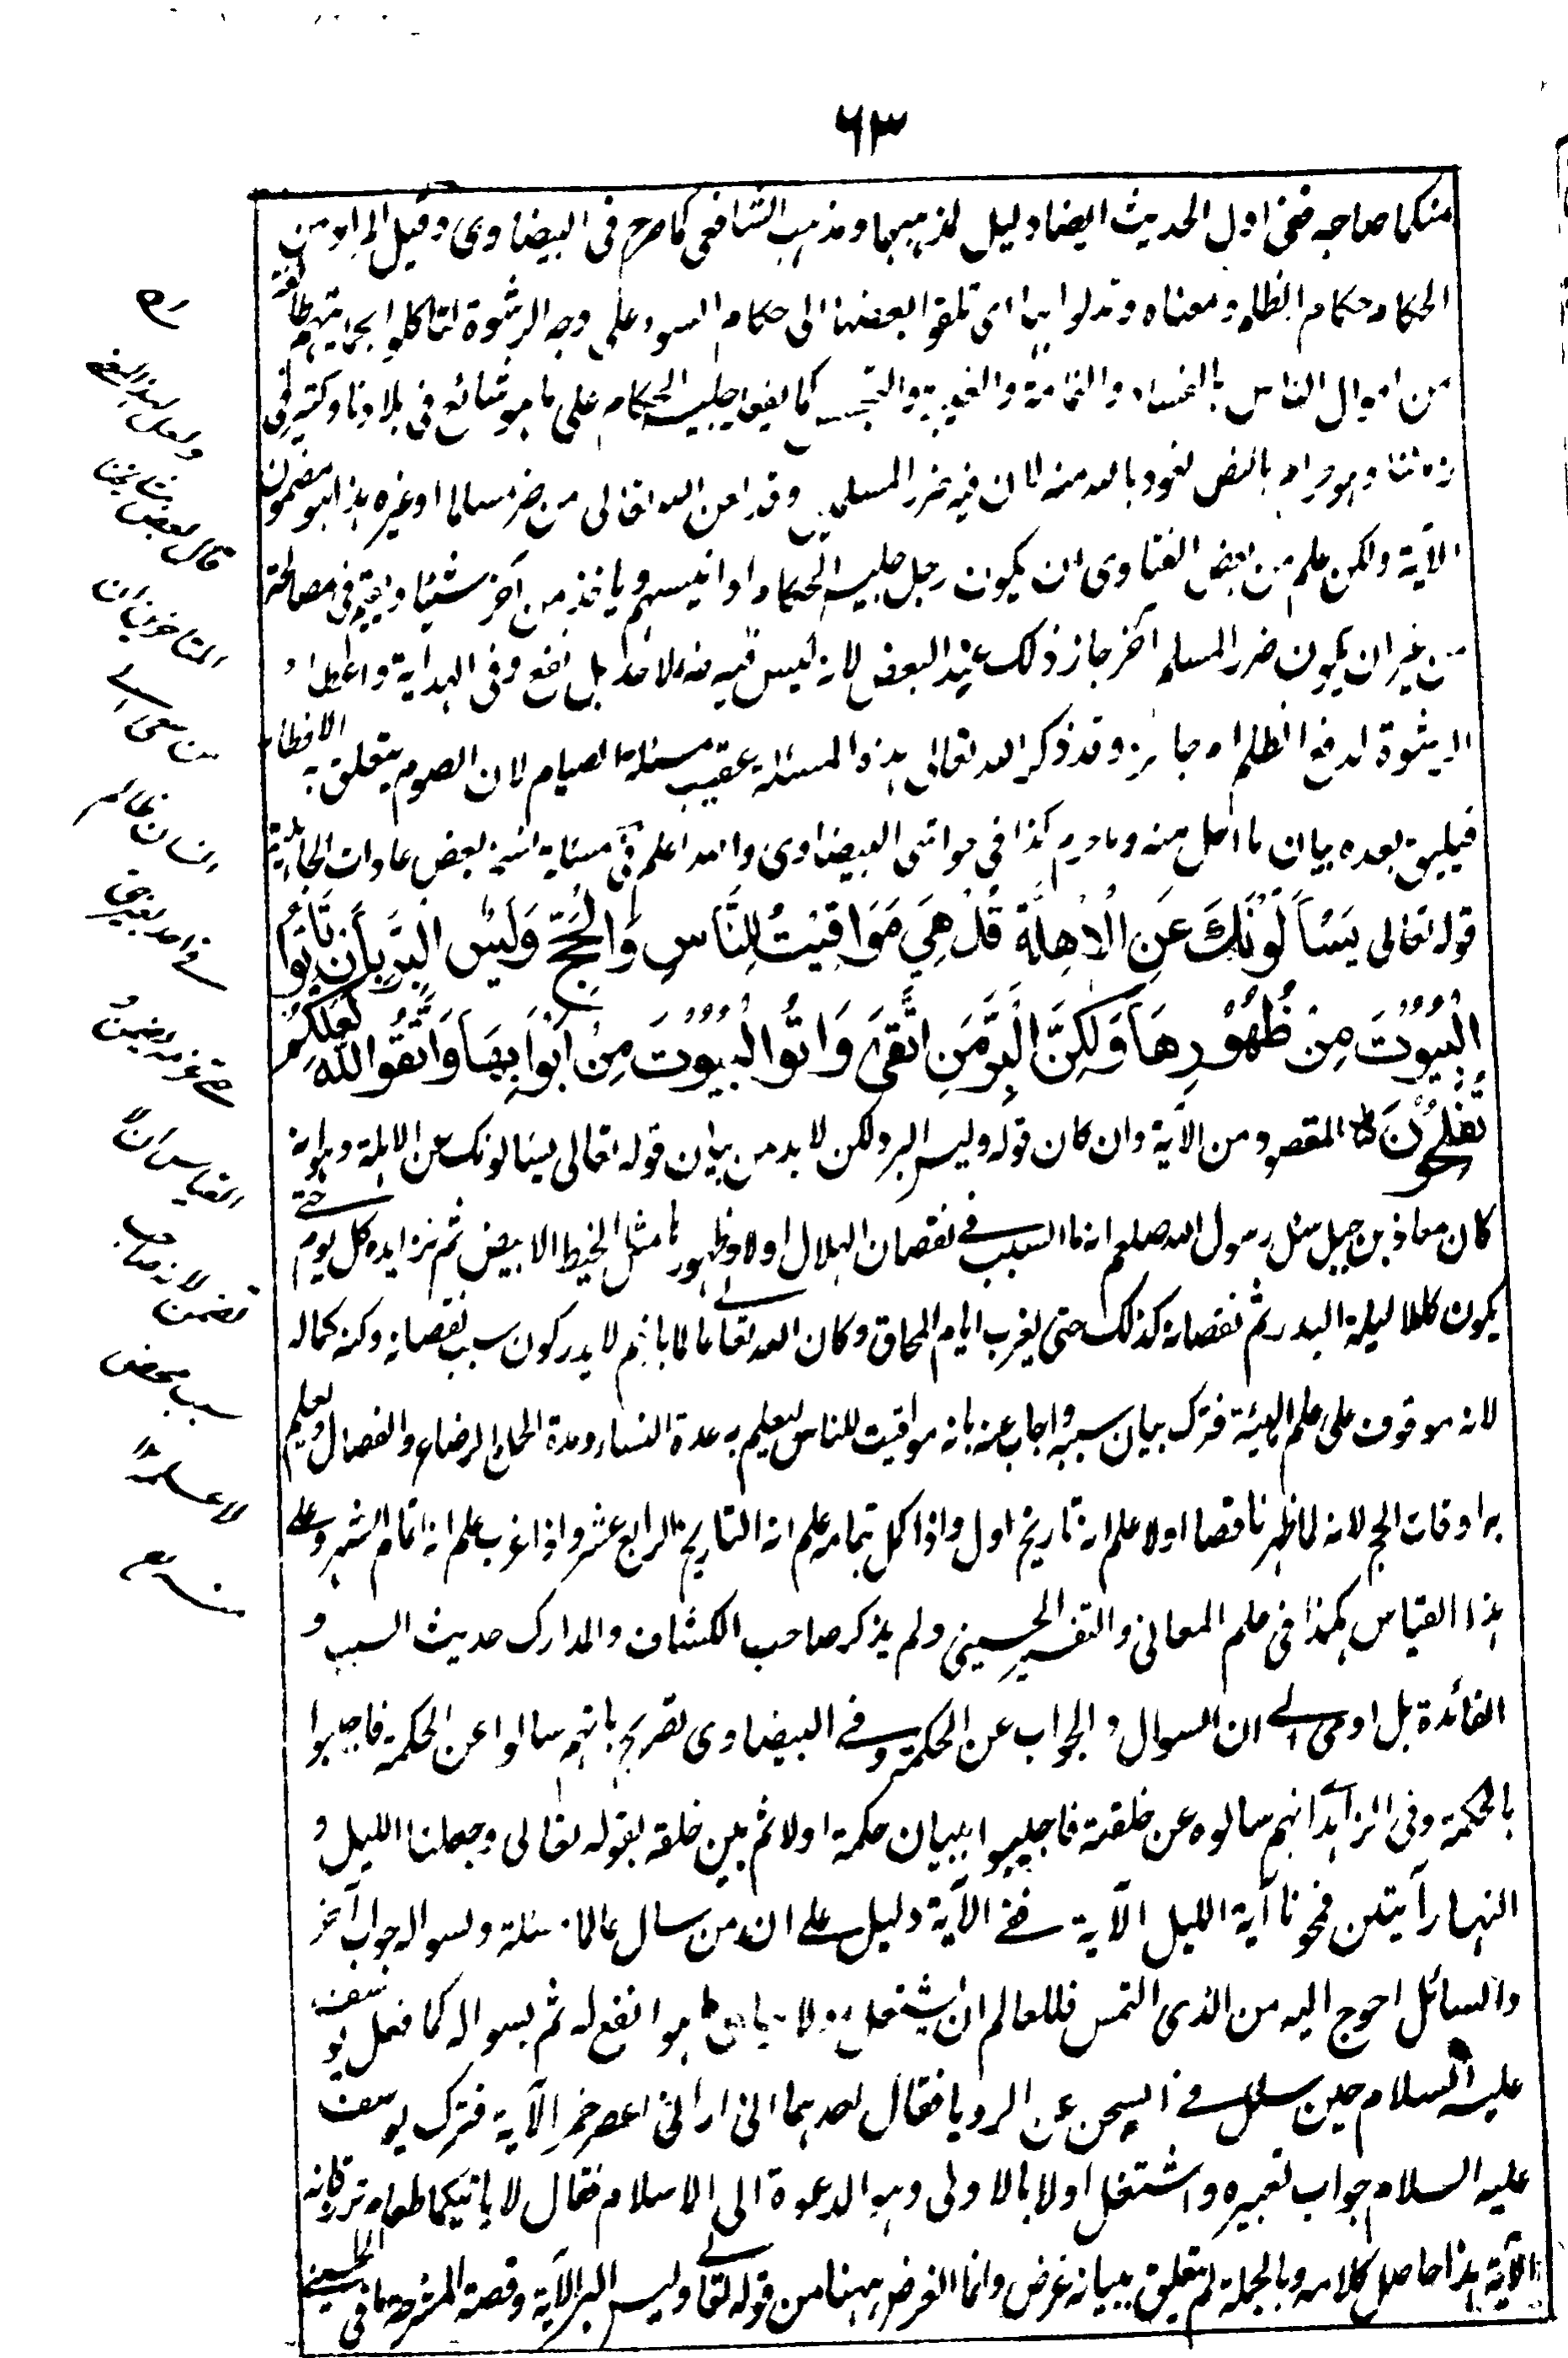 ٦٣
منكما صاحبه ففى اول الحديث ايضا دليل لمذهبهما ومذهب الشافعى كما صرح فى البيضاوى وقيل المراد من
الحكام حكام الظلم ومعناه وتدلوا بها اى تلقوا بعضها الى حكام السوء على وجه الرشوة لتأكلوا بحمايتهم طائفة
من اموال الناس بالفساد والنمامة والغيبة والتجسس كما يفعل جليس الحكام على ما هو شائع فى بلادنا وكثير فى
زماننا وهو حرام بالنص نعوذ بالله منه لان فيه ضرر المسلمين وقد لعن الله تعالى من ضر مسلما او غيره هذا هو مضمون
الآية ولكن علم من بعض الفتاوى ان يكون رجل جليس الحكام او انيسهم وياخذ من آخر شيئا ويقيم فى مصالحة
من غير ان يكون ضرر المسلم آخر جاز ذلك عند البعض لانه ليس فيه ضر لاحد بل نفع وفى الهداية واعطاء
الرشوة لدفع الظلم امر جائز وقد ذكر الله تعالى هذه المسئلة عقيب مسئلة الصيام لان الصوم يتعلق به الافطار
فيليق بعده بيان ما احل منه وما حرم كذا فى حواشى البيضاوى والله اعلم فى مسئلة نسخ بعض عادات الجاهلية
قوله تعالى يَسْأَلُونَكَ عَنِ الْاَهِلَّةِ قُلْ هِيَ مَوَاقِيْتُ لِلنَّاسِ وَالْحَجِّ وَلَيْسَ الْبِرُّ بِاَنْ تَأْتُوا
الْبُيُوْتَ مِنْ ظُهُوْرِهَا وَلٰكِنَّ الْبِرَّ مَنِ اتَّقٰى وَاْتُوا الْبُيُوْتَ مِنْ اَبْوَابِهَا وَاتَّقُوا اللهَ لَعَلَّكُمْ
تُفْلِحُوْنَ المقصود من الآية وان كان قوله وليس البر ولكن لا بد من بيان قوله تعالى يسالونك عن الاهلة وهو انه
كان معاذ بن جبل سئل رسول الله صلعم انه ما السبب فى نقصان الهلال اولا وظهورها مثل الخيط الابيض ثم تزايده كل يوم حتى
يكون كملا ليلة البدر ثم نقصانه كذلك حتى يغرب ايام المحاق وكان الله تعالى عالما بانهم لا يدركون سبب نقصانه وكنه كماله
لانه موقوف على علم الهيئة فترك بيان سببه واجاب عنه بانه مواقيت للناس ليعلم به عدة النساء ومدة الحمل والرضاع والفصال وليعلم
به اوقات الحج لانه لما ظهر ناقصا اولا علم انه تاريخ اول واذا كمل تمامه علم انه التاريخ الرابع عشر واذا غرب علم انه تمام الشهر وعلى
هذا القياس هكذا فى علم المعانى والتفسير الحسينى ولم يذكر صاحب الكشاف والمدارك حديث السبب و
الفائدة بل اومى الى ان السوال والجواب عن الحكمة وفى البيضاوى تصريح بانهم سالوا عن الحكمة فاجيبوا
بالحكمة وفى الزاهدى انهم سالوه عن خلقته فاجيبوا ببيان حكمة اولا ثم بين خلقه بقوله تعالى وجعلنا الليل و
النهار آيتين فمحونا آية الليل الآية ففى الآية دليل على ان من سال عالما مسئلة ولسواله جواب آخر
والسائل احوج اليه من الذى التمس فللعالم ان يشتغل اولا ببيان ما هو انفع له ثم بسواله كما فعل يوسف
عليه السلام حين سئل فى السجن عن الرويا فقال احدهما انى ارانى اعصر خمرا الآية فترك يوسف
عليه السلام جواب تعبيره واشتغل اولا بالاولى وهو الدعوة الى الاسلام فقال لا ياتيكما طعام ترزقانه
الآية هذا حاصل كلامه وبالجملة لم يتعلق ببيانه غرض وانما الغرض ههنا من قوله تعالى وليس البر الآية وقصة المشرحة ما فى الحسينى
قال بعض
المتاخرين ان
من سعى الى
انسان ظالم
فاخذ بغير حق
القياس ان لا
تضمن لانه صاحب
سبب محض